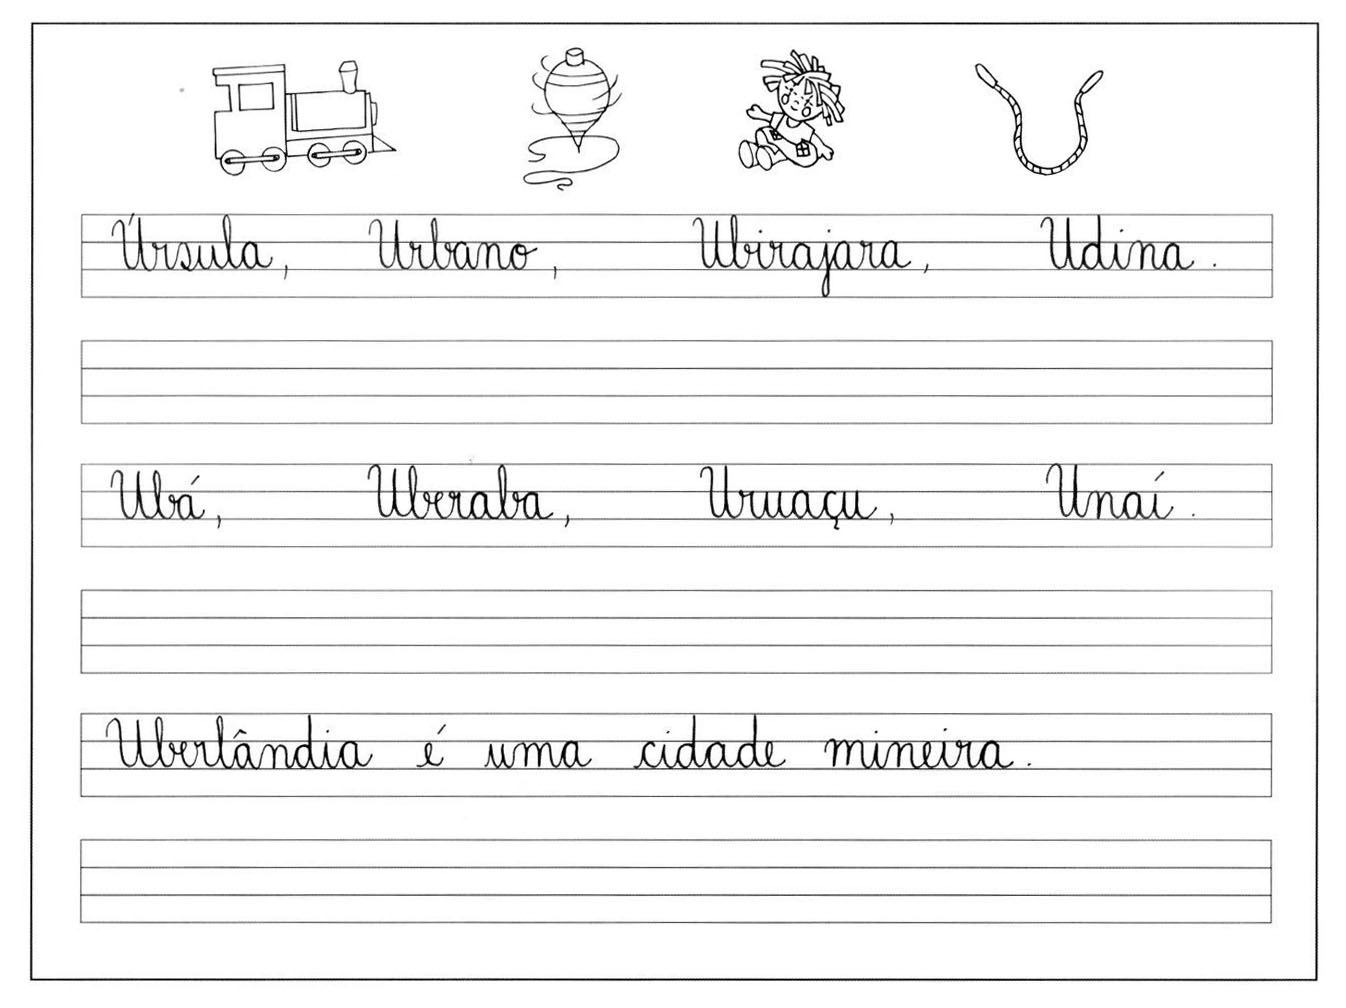 Úrsula, Urbano, Ubirajara, Udina.
Ubá, Uberaba, Uruaçu, Unaí.
Uberlândia é uma cidade mineira.